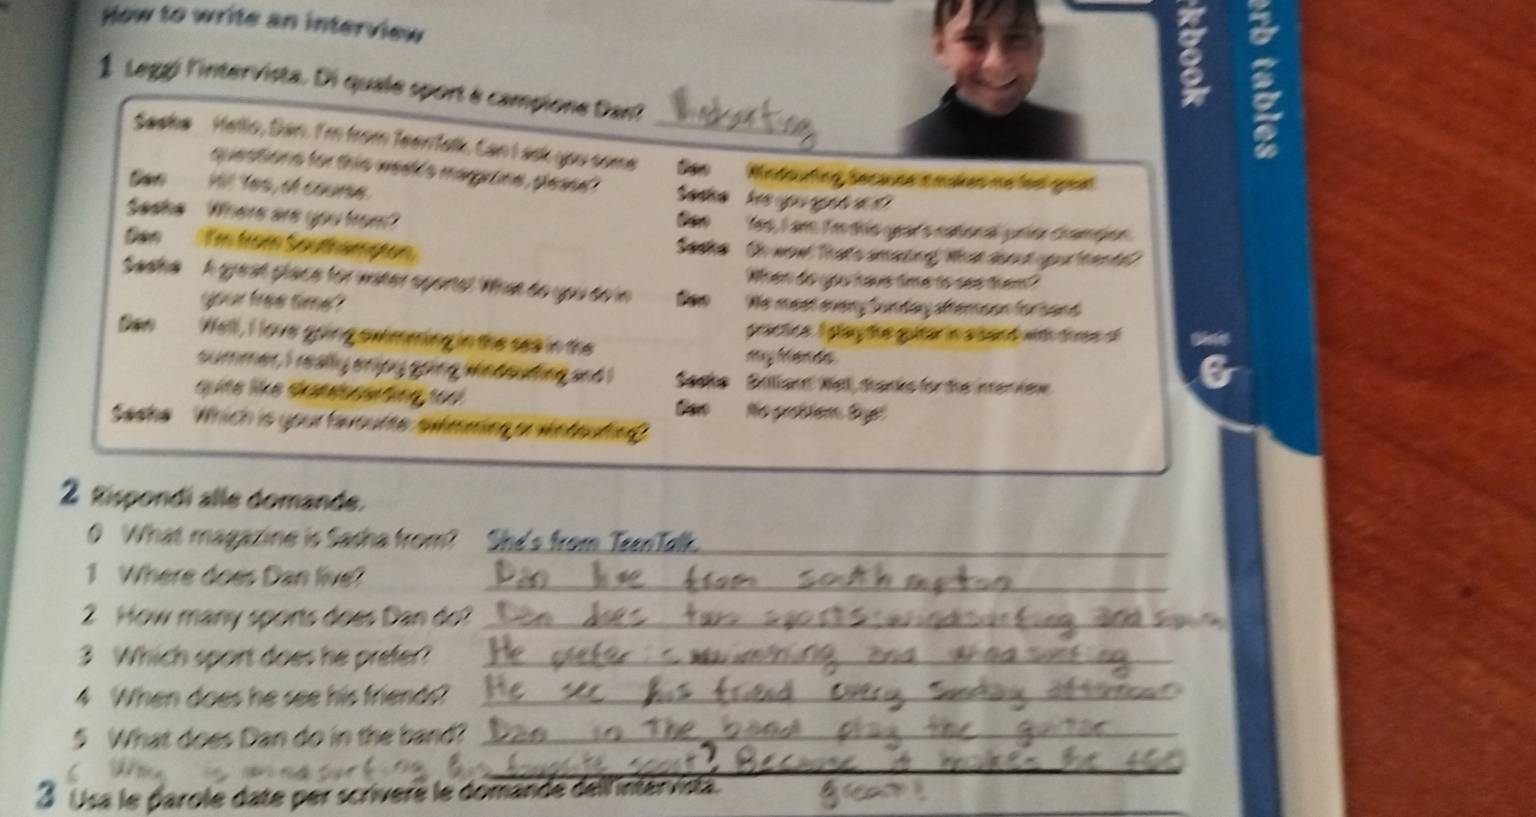 How to write an interview
1 Leggi l'intervista. Di quale sport è campione Dan? Windsurfing
Sasha Hello, Dan. I'm from TeenTalk. Can I ask you some
questions for this week's magazine, please?
Dan Hi! Yes, of course.
Sasha Where are you from?
Dan I'm from Southampton.
Sasha A great place for water sports! What do you do in
your free time?
Dan Well, I love going swimming in the sea in the
summer, I really enjoy going windsurfing and I
quite like skateboarding, too!
Sasha Which is your favourite: swimming or windsurfing?
Dan Windsurfing, because it makes me feel great!
Sasha Are you good at it?
Dan Yes, I am. I'm this year's national junior champion.
Sasha Oh wow! That's amazing! What about your friends?
When do you have time to see them?
Dan We meet every Sunday afternoon for band
practice. I play the guitar in a band with three of
my friends.
Sasha Brilliant! Well, thanks for the interview.
Dan No problem. Bye!
rkbook
erb tables
Unit
6
2 Rispondi alle domande.
0 What magazine is Sasha from? She's from TeenTalk.
1 Where does Dan live? Dan live from south mpton
2 How many sports does Dan do? Dan does two sports: windsurfing and
3 Which sport does he prefer? He prefer swimming and windsurfing
4 When does he see his friends? He see his friend every Sunday afternoon
5 What does Dan do in the band? Dan in The band play the guitar
6 Why is windsurfing his sport? Because it makes he
great!
3 Usa le parole date per scrivere le domande dell'intervista.